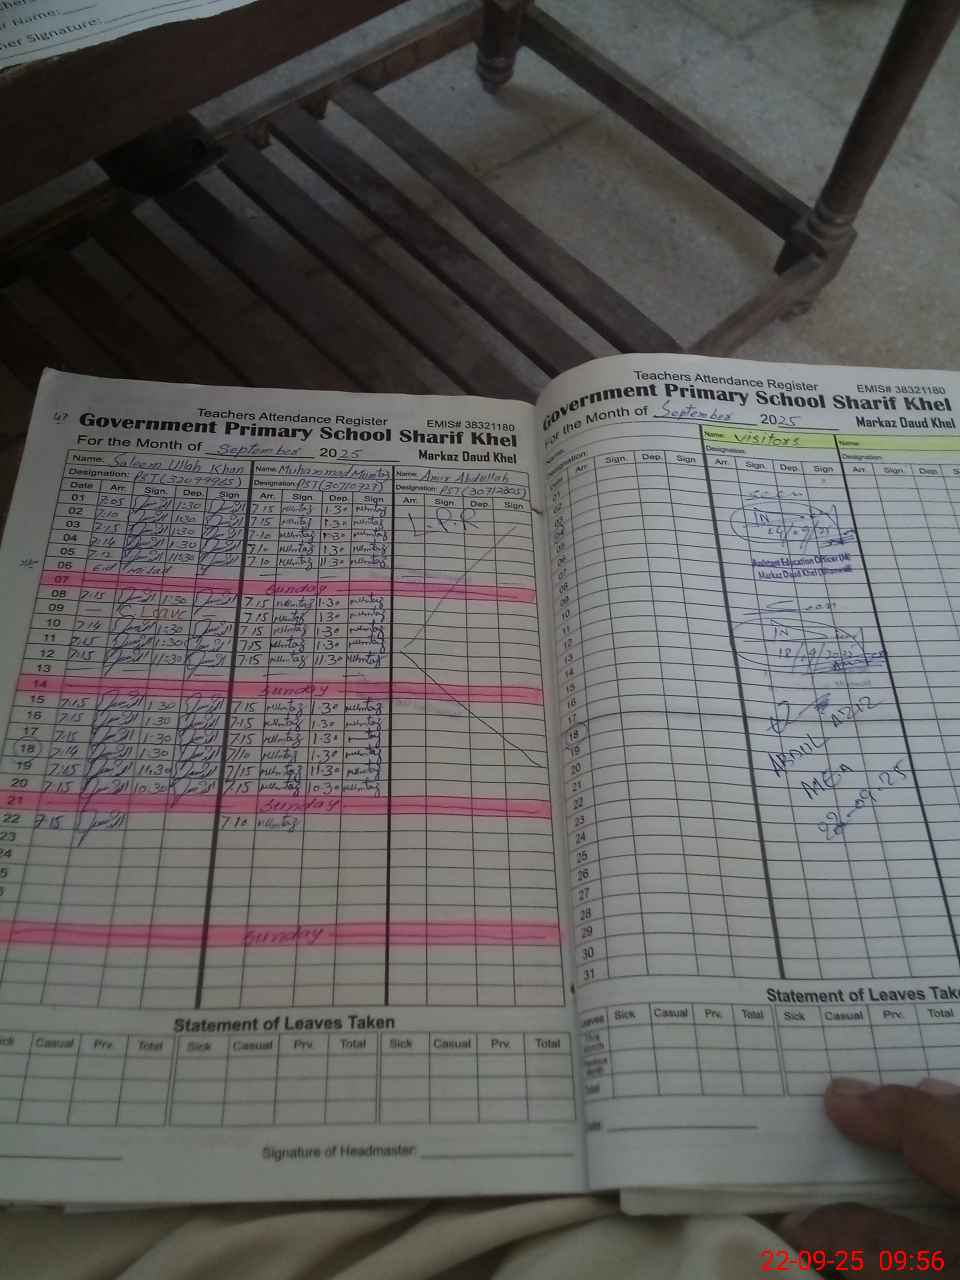 r Name:
her Signature:
47
Teachers Attendance Register
EMIS# 38321180
Government Primary School Sharif Khel
For the Month of September 2025 Markaz Daud Khel
Name: Saleem Ullah Khan Name: Muhammad Mumtaz Name: Amir Abdullah
Designation: PST (32099965) Designation: PST (30710727) Designation: PST (30712805)
Date Arr. Sign. Dep. Sign Arr. Sign. Dep. Sign Arr. Sign. Dep. Sign
01 7:05 1:30 7:15 Mumtaz 1:30 Mumtaz L.P.R
02 7:10 1:30 7:15 Mumtaz 1:30 Mumtaz
03 7:15 1:30 7:10 Mumtaz 1:30 Mumtaz
04 7:14 1:30 7:10 Mumtaz 1:30 Mumtaz
05 7:12 11:30 7:10 Mumtaz 11:30 Mumtaz
06 Eid Milad
07 Sunday
08 7:15 1:30 7:15 Mumtaz 1:30 Mumtaz
09 C. Leave 7:15 Mumtaz 1:30 Mumtaz
10 7:14 1:30 7:15 Mumtaz 1:30 Mumtaz
11 7:15 1:30 7:15 Mumtaz 1:30 Mumtaz
12 7:15 11:30 7:15 Mumtaz 11:30 Mumtaz
13
14 Sunday
15 7:15 1:30 7:15 Mumtaz 1:30 Mumtaz
16 7:15 1:30 7:15 Mumtaz 1:30 Mumtaz
17 7:15 1:30 7:15 Mumtaz 1:30 Mumtaz
18 7:14 1:30 7:10 Mumtaz 1:30 Mumtaz
19 7:15 11:30 7:15 Mumtaz 11:30 Mumtaz
20 7:15 10:30 7:15 Mumtaz 10:30 Mumtaz
21 Sunday
22 7:15 7:10 Mumtaz
23
24
5
Sunday
Statement of Leaves Taken
ick Casual Prv. Total Sick Casual Prv. Total Sick Casual Prv. Total
Signature of Headmaster:
Teachers Attendance Register
EMIS# 38321180
Government Primary School Sharif Khel
For the Month of September 2025 Markaz Daud Khel
Name: Name: Visitors Name:
Designation: Designation: Designation:
Arr. Sign. Dep. Sign Arr. Sign. Dep. Sign Arr. Sign. Dep. S
Seen
IN
Assistant Education Officer
Markaz Daud Khel
Seen
IN
18/9/2025
ABDUL AZIZ
AEO
22-09-25
17
18
19
20
21
22
23
24
25
26
27
28
29
30
31
Statement of Leaves Take
Leaves Sick Casual Prv. Total Sick Casual Prv. Total
This Month
Previous Month
Total
Date:
22-09-25 09:56